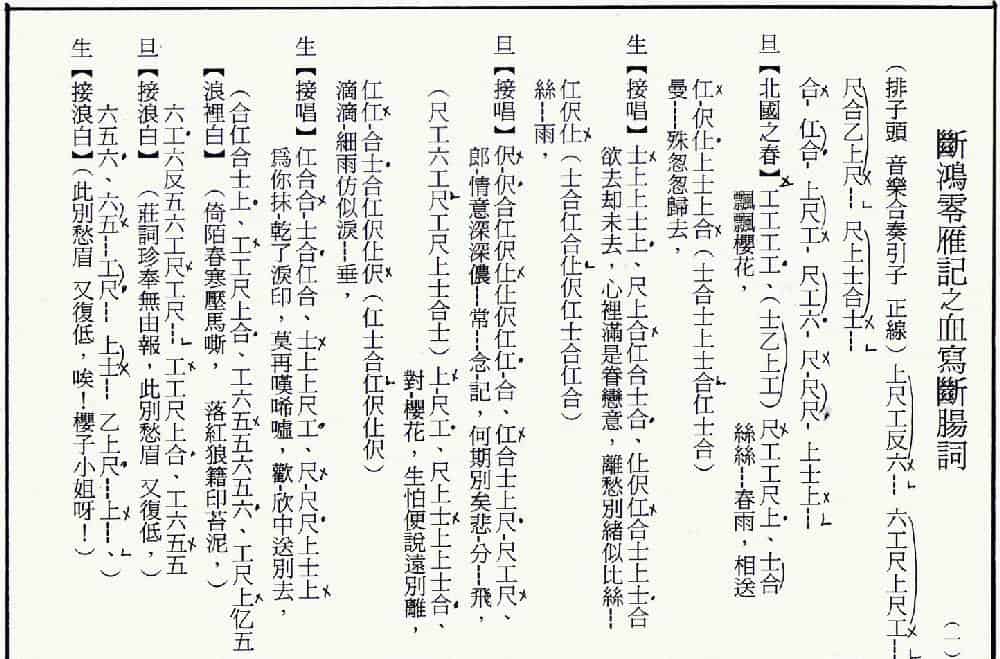 斷鴻零雁記之血寫斷腸詞 (一)
(排子頭 音樂合奏引子 正線) 上尺工反六-- 六工尺上尺工--
尺合乙上尺-- 尺上士合士--
合 仜合 上尺工 尺工六 尺尺尺 上士上--
旦【北國之春】工工工工、(士乙上工) 尺工工尺上、士合
飄飄櫻花, 絲絲--春雨,相送
仜-伬仩上士上合 (士合士上士上士合仜士合)
曼--殊怱怱歸去,
生【接唱】士上上上士上、尺上合仜合士合、仩伬仜合士上士合
欲去却未去,心裡滿是眷戀意,離愁別緒似比絲--
仜伬仩 (士合仜合仩伬仜士合仜合)
絲--雨,
旦【接唱】伬-伬合仜伬仩仩伬仜仜-合、仜合士上尺-尺工尺、
郎-情意深深儂--常--念-記,何期別矣悲-分--飛,
(尺工六工尺工尺上士合士) 上-尺工、尺上士上上士合、
對-櫻花,生怕便說遠別離,
仜仜-合士合仜伬仩伬 (仜士合仜伬仩伬)
滴滴-細雨仿似淚--垂,
生【接唱】仜合合士合仜合、士上上尺工、尺-尺尺上士上
爲你抹-乾了淚印,莫再嘆唏噓,歡-欣中送別去,
(合仜合士上、工工尺上合、工六五五六五六、工尺上亿五
【浪裡白】(倚陌春寒壓馬嘶, 落紅狼籍印苔泥,)
六工六反五六工尺工尺-- 工工尺上合、工六五五
旦【接浪白】(莊詞珍奉無由報,此別愁眉 又復低,)
六五六、六五--工尺-- 上士-- 乙上尺--上--、)
生【接浪白】(此別愁眉 又復低,唉!櫻子小姐呀!)